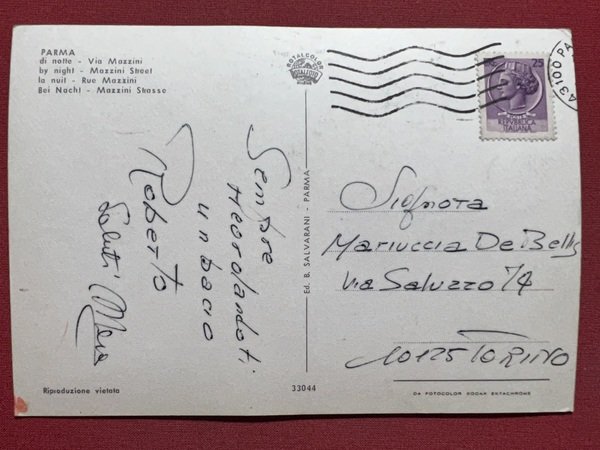 PARMA
di notte - Via Mazzini
by night - Mazzini Street
la nuit - Rue Mazzini
Bei Nacht - Mazzini Strasse
ROTALCOLOR
ROTALFOTO
25
REPVBBLICA
ITALIANA
43100 PA
Sempre
ricordandoti
un bacio
Roberto
Saluti
Ed. B. SALVARANI - PARMA
Signora
Mariuccia De Bellis
Via Saluzzo 74
10125 TORINO
Riproduzione vietata
33044
DA FOTOCOLOR KODAK EKTACHROME